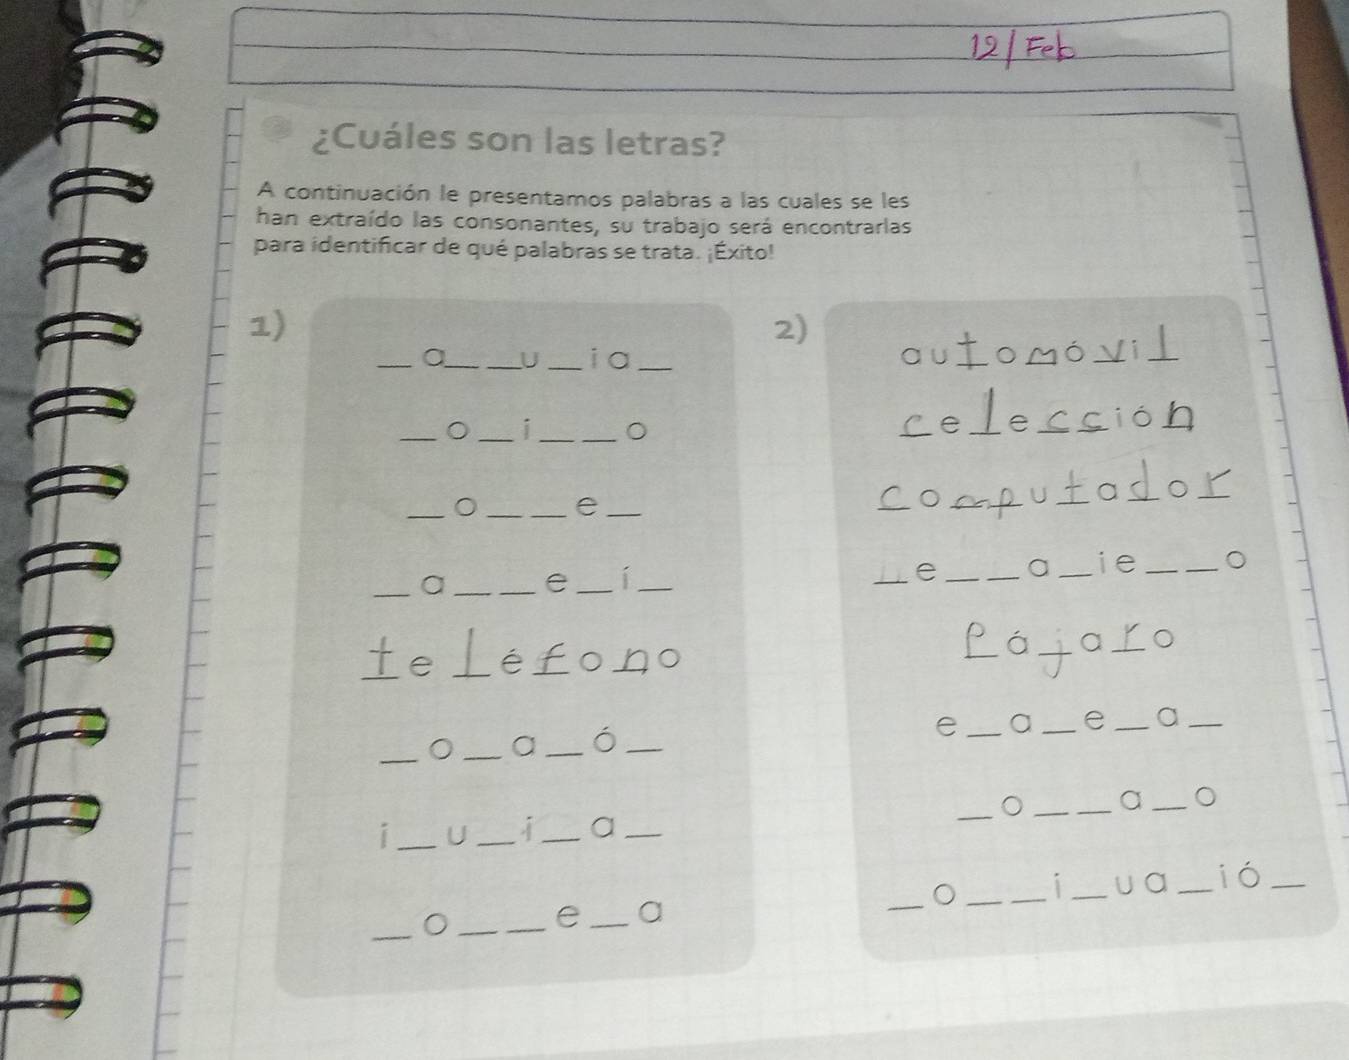 12/Feb
¿Cuáles son las letras?
A continuación le presentamos palabras a las cuales se les
han extraído las consonantes, su trabajo será encontrarlas
para identificar de qué palabras se trata. ¡Éxito!
1)
_a__u_ia_
_o_i__o
_o__e_
_a__e_í_
teléfono
_o_a_ó_
i_u_i_a_
_o__e_a
2)
automóvil
celección
computador
_e__a_ie__o
Pájaro
e_a_e_a_
_o__a_o
_o__i_ua_ió_